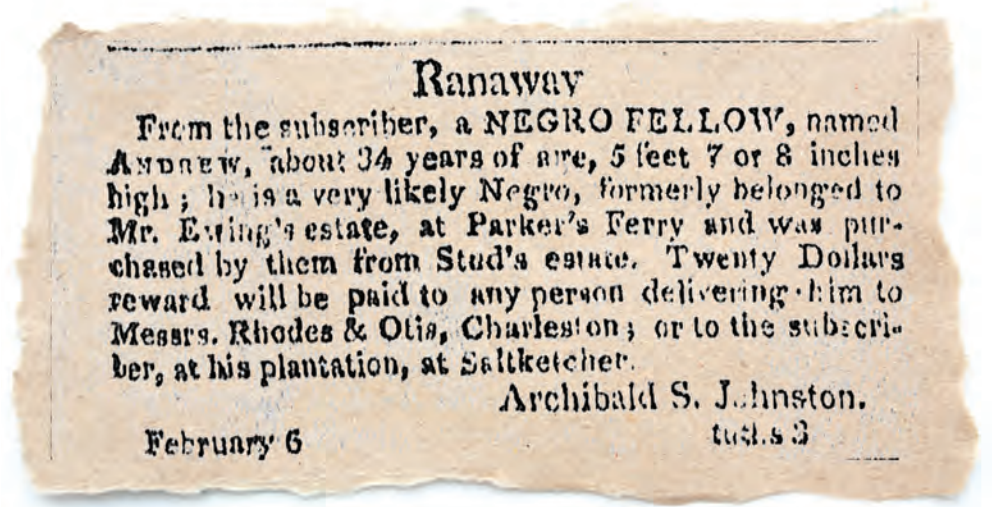 Ranaway
From the subscriber, a NEGRO FELLOW, named
ANDREW, about 34 years of age, 5 feet 7 or 8 inches
high ; he is a very likely Negro, formerly belonged to
Mr. Ewing's estate, at Parker's Ferry and was pur-
chased by them from Stud's estate. Twenty Dollars
reward will be paid to any person delivering him to
Messrs. Rhodes & Otis, Charleston ; or to the subscri-
ber, at his plantation, at Saltketcher.
Archibald S. Johnston.
February 6